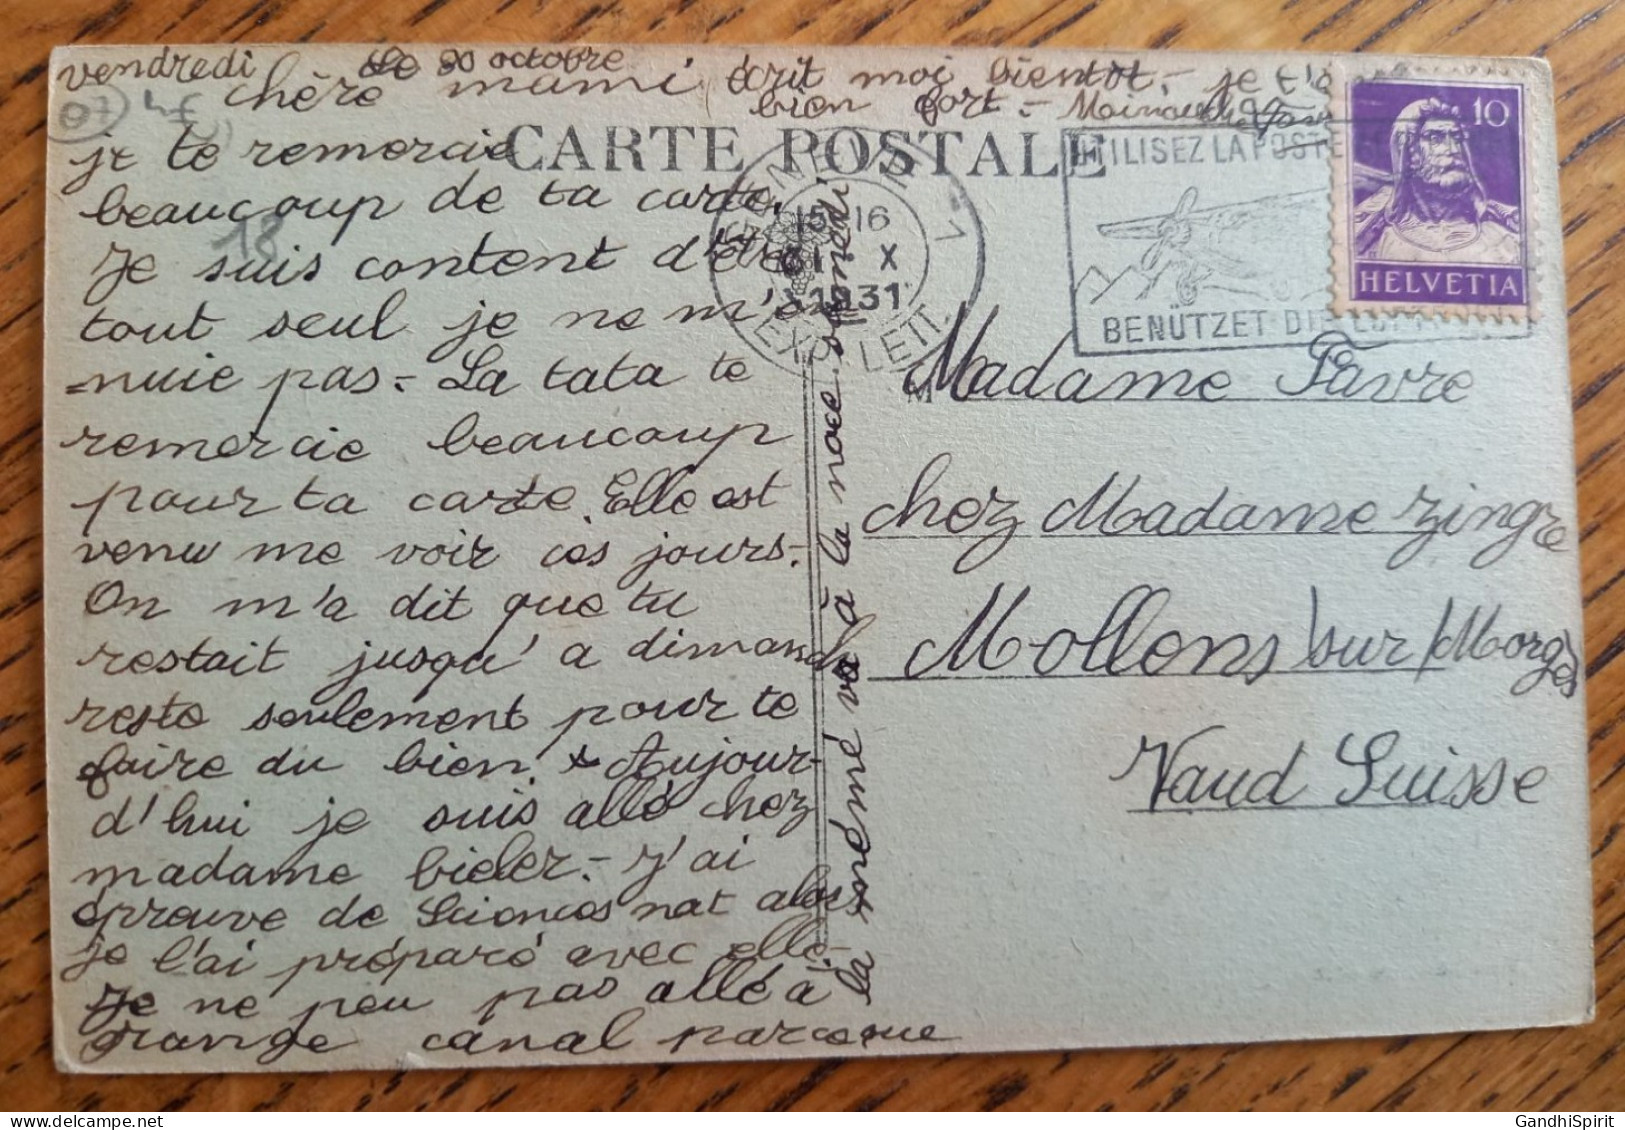 vendredi le 30 octobre
chère mami écrit moi bientot.- je t'
bien fort -
07
18
CARTE POSTALE
je te remercie
beaucoup de ta carte.
Je suis content d'être
tout seul je ne m'en
-nuie pas.- La tata te
remercie beaucoup
pour ta carte. Elle est
venu me voir ces jours.-
On m'a dit que tu
restait jusqu'a dimanch
reste seulement pour te
faire du bien. Aujour-
d'hui je suis allé chez
madame bieler.- J'ai
épreuve de Sciences nat alors
je l'ai préparé avec elle-
Je ne peu pas allé à
grange canal parceque
la mémé va à la noce samedi
GENÈVE 1
15-16
31 X
1931
EXP. LETT.
UTILISEZ LA POSTE
BENÜTZET DIE
10
HELVETIA
Madame Favre
chez Madame Zingre
Mollens sur/Morges
Vaud Suisse
GandhiSpirit